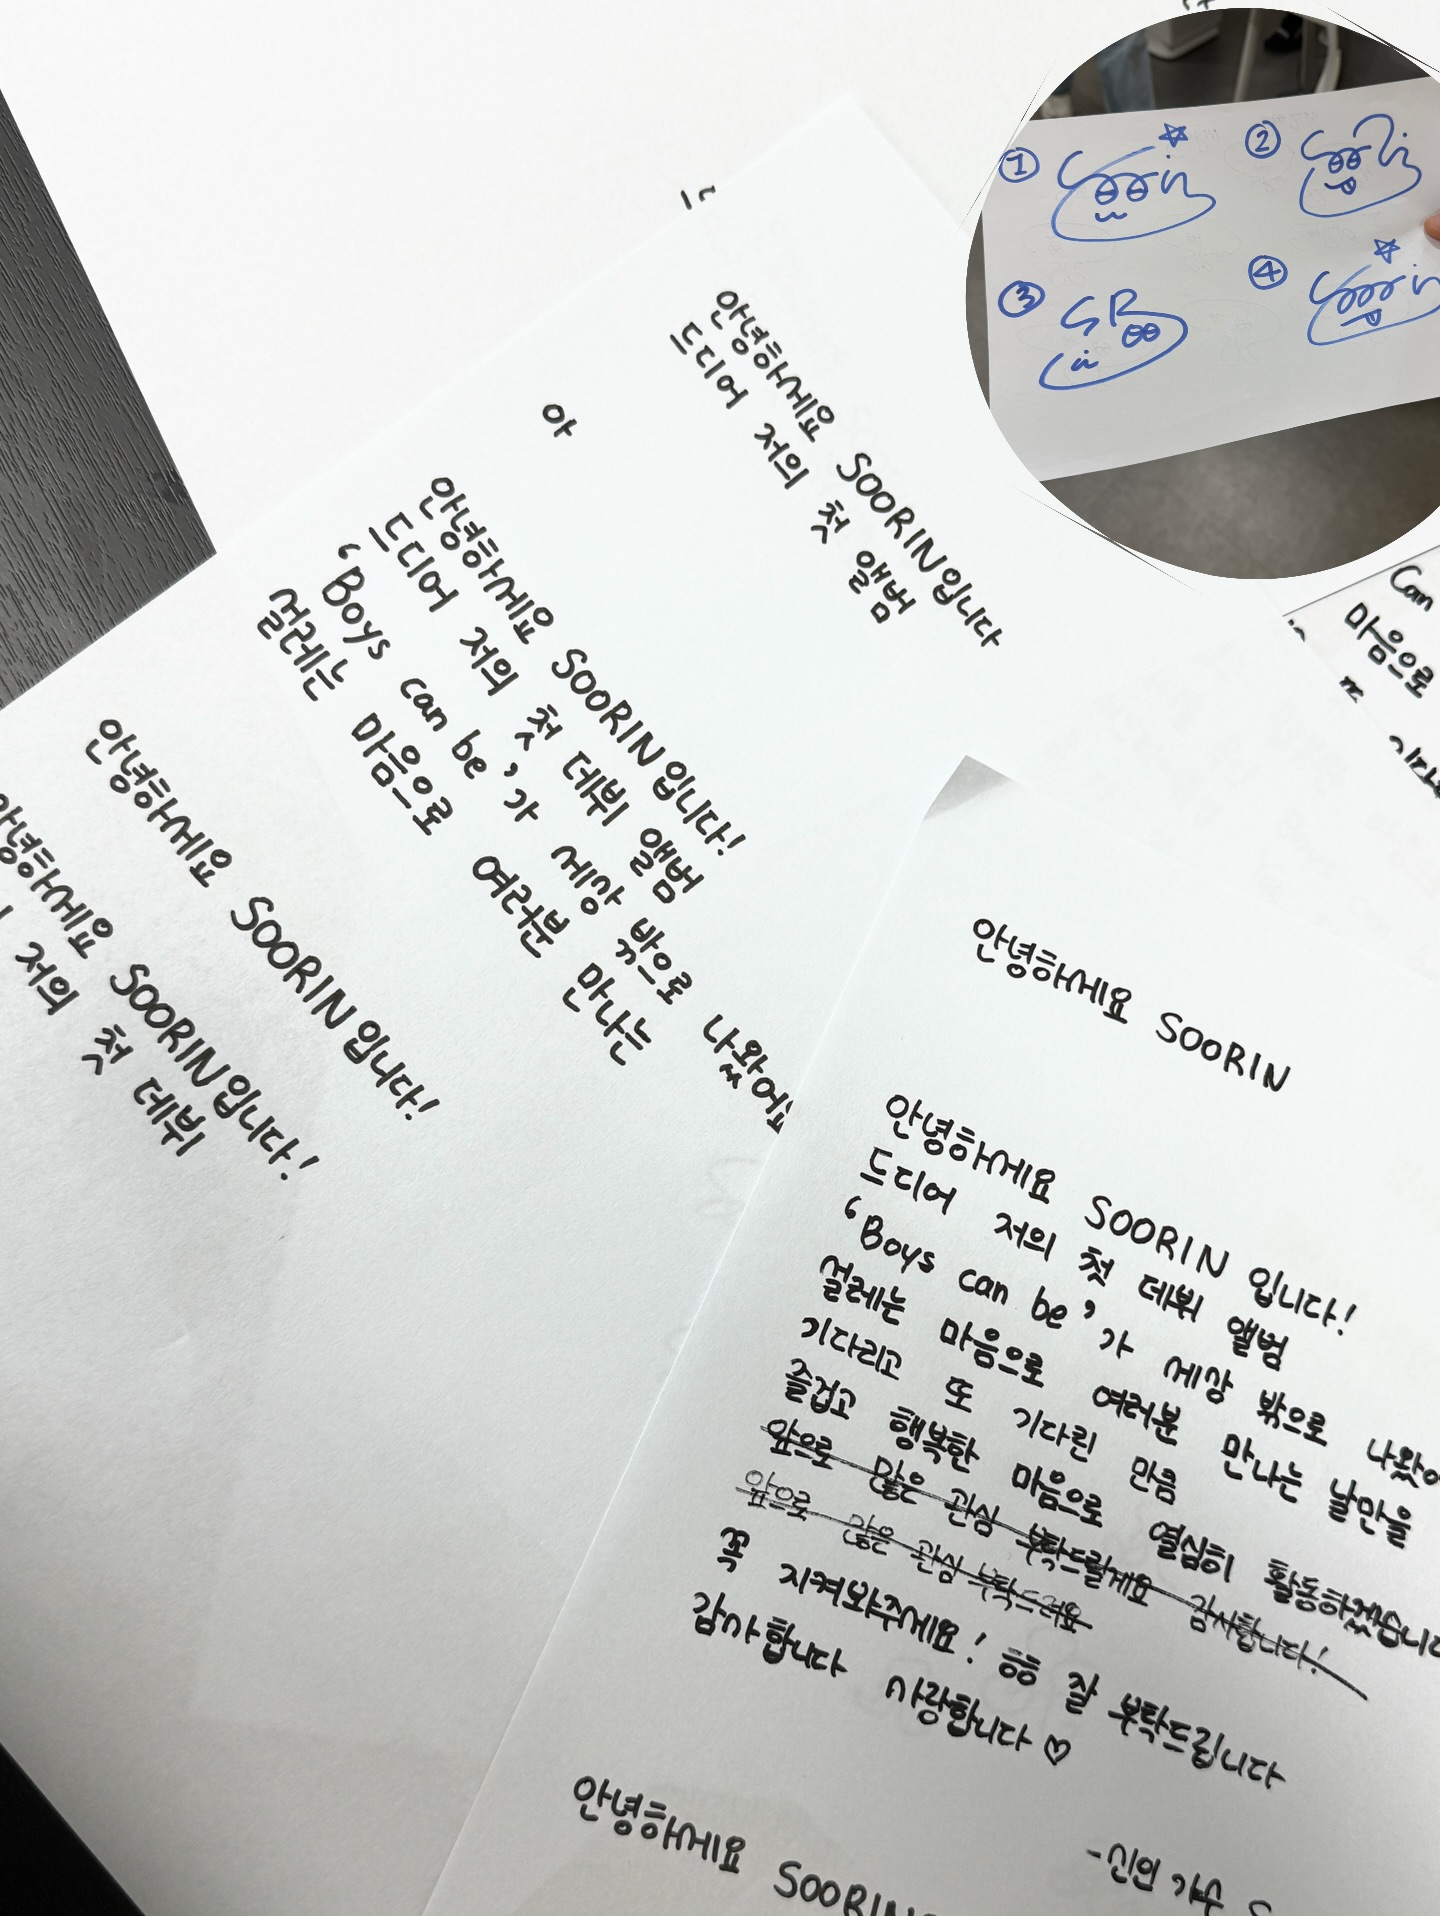 ①
②
③
④
Soorin
Soorin
SR
Soorin
안녕하세요 SOORIN입니다
드디어 저의 첫 앨범
아
안녕하세요 SOORIN입니다!
드디어 저의 첫 데뷔 앨범
‘Boys can be’가 세상 밖으로 나왔어요
설레는 마음으로 여러분 만나는
안녕하세요 SOORIN입니다!
안녕하세요 SOORIN입니다!
저의 첫 데뷔
Can
마음으로
안녕하세요 SOORIN
안녕하세요 SOORIN 입니다!
드디어 저의 첫 데뷔 앨범
‘Boys can be’가 세상 밖으로 나왔어
설레는 마음으로 여러분 만나는 날만을
기다리고 또 기다린 만큼
즐겁고 행복한 마음으로 열심히 활동하겠습니다
앞으로 많은 관심 부탁드릴게요 감사합니다!
앞으로 많은 관심 부탁드려요
꼭 지켜봐주세요! ㅎㅎ 잘 부탁드립니다
감사합니다 사랑합니다♡
-신인 가수 S
안녕하세요 SOORIN